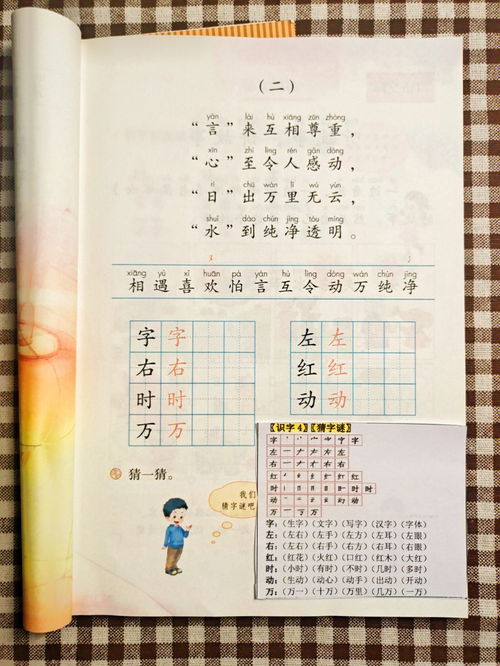 （二）
yán lái hù xiāng zūn zhòng
“言”来互相尊重，
xīn zhì lìng rén gǎn dòng
“心”至令人感动，
rì chū wàn lǐ wú yún
“日”出万里无云，
shuǐ dào chún jìng tòu míng
“水”到纯净透明。
xiāng yù xǐ huān pà yán hù lìng dòng wàn chún jìng
相遇喜欢怕言互令动万纯净
字字 左左
右右 红红
时时 动动
万万
猜一猜。
我们
猜字谜吧
《识字4》《猜字谜》
字 字
左 一 ナ 左 左
右 一 ナ 右 右
红 红 红
时 时 时
动 动
万 一 万
字：（生字）（文字）（写字）（汉字）（字体）
左：（左右）（左手）（左方）（左耳）（左眼）
右：（左右）（右手）（右方）（右耳）（右眼）
红：（红花）（火红）（口红）（红木）（大红）
时：（小时）（有时）（不时）（几时）（多时）
动：（生动）（动心）（动手）（出动）（开动）
万：（万一）（十万）（万里）（几万）（一万）